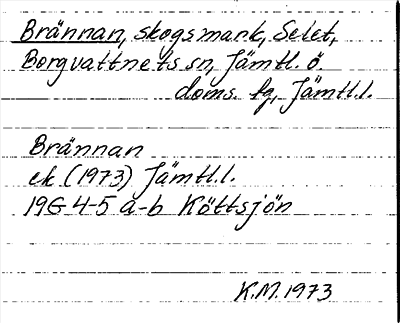 Brännan, skogsmark, Selet,
Borgvattnets sn, Jämtl. ö.
doms. fg, Jämtl.l.
Brännan
ek (1973) Jämtl.l.
19G 4-5 a-b Köttsjön
K.M. 1973